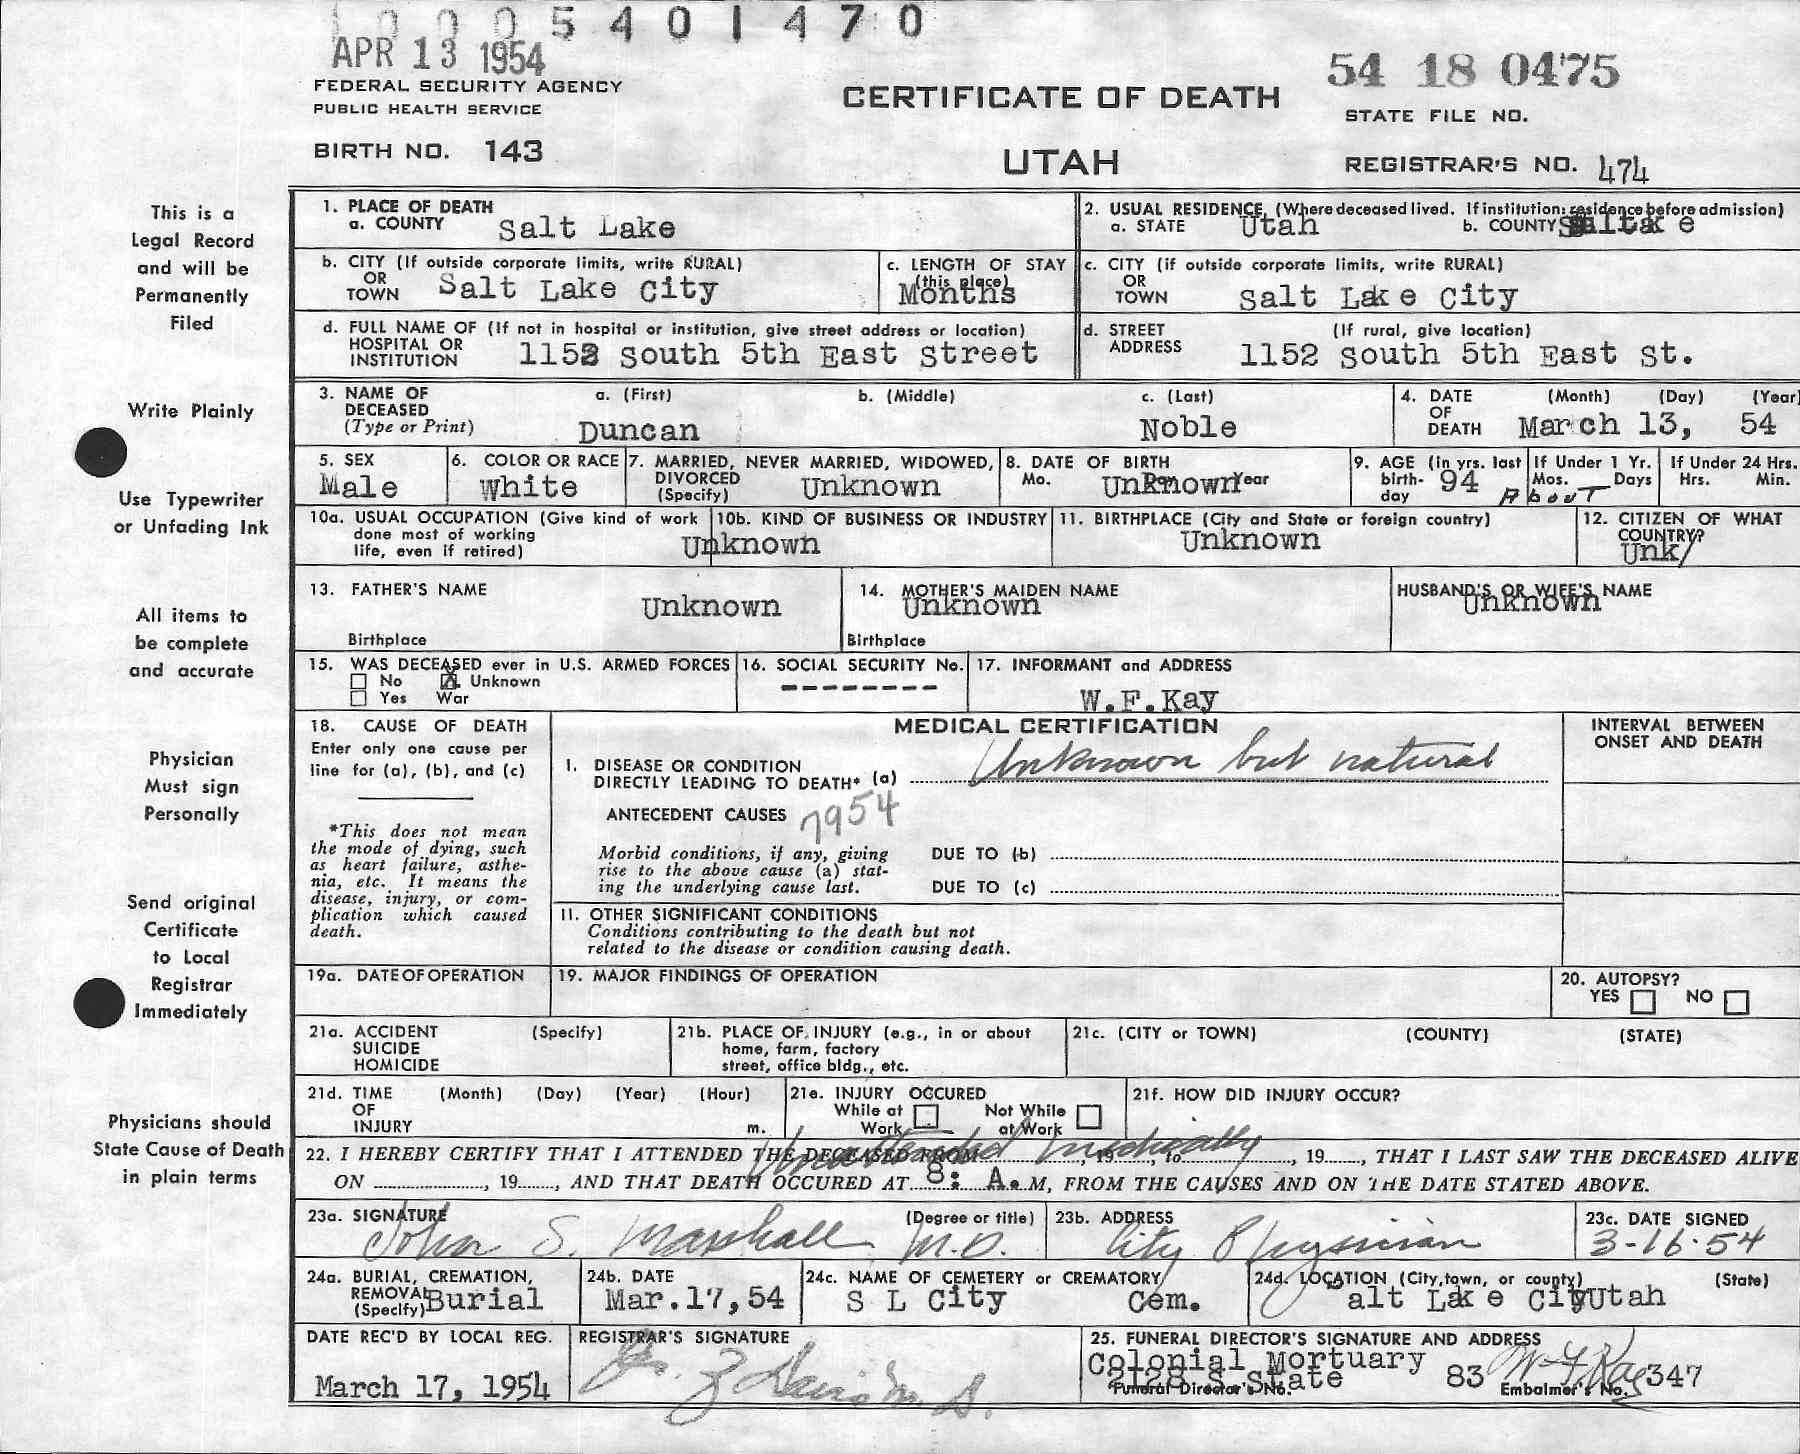 1 0 0 0 5 4 0 1 4 7 0
APR 13 1954
54 18 0475
FEDERAL SECURITY AGENCY
PUBLIC HEALTH SERVICE
CERTIFICATE OF DEATH
STATE FILE NO.
BIRTH NO. 143
UTAH
REGISTRAR'S NO. 474
This is a
Legal Record
and will be
Permanently
Filed
Write Plainly
Use Typewriter
or Unfading Ink
All items to
be complete
and accurate
Physician
Must sign
Personally
Send original
Certificate
to Local
Registrar
Immediately
Physicians should
State Cause of Death
in plain terms
1. PLACE OF DEATH
a. COUNTY Salt Lake
2. USUAL RESIDENCE (Where deceased lived. If institution: residence before admission)
a. STATE Utah b. COUNTY Saltake
b. CITY (If outside corporate limits, write RURAL)
OR
TOWN Salt Lake City
c. LENGTH OF STAY
(this place)
Months
c. CITY (if outside corporate limits, write RURAL)
OR
TOWN Salt Lake City
d. FULL NAME OF (If not in hospital or institution, give street address or location)
HOSPITAL OR
INSTITUTION 1152 South 5th East Street
d. STREET (If rural, give location)
ADDRESS 1152 South 5th East St.
3. NAME OF DECEASED
(Type or Print)
a. (First) b. (Middle) c. (Last)
Duncan Noble
4. DATE OF DEATH (Month) (Day) (Year)
March 13, 54
5. SEX
Male
6. COLOR OR RACE
White
7. MARRIED, NEVER MARRIED, WIDOWED,
DIVORCED
(Specify) Unknown
8. DATE OF BIRTH
Mo. Day Year
Unknown
9. AGE (in yrs. last
birth-
day 94 About
If Under 1 Yr.
Mos. Days
If Under 24 Hrs.
Hrs. Min.
10a. USUAL OCCUPATION (Give kind of work
done most of working
life, even if retired)
10b. KIND OF BUSINESS OR INDUSTRY
Unknown
11. BIRTHPLACE (City and State or foreign country)
Unknown
12. CITIZEN OF WHAT
COUNTRY?
Unk/
13. FATHER'S NAME
Unknown
Birthplace
14. MOTHER'S MAIDEN NAME
Unknown
Birthplace
HUSBAND'S OR WIFE'S NAME
Unknown
15. WAS DECEASED ever in U.S. ARMED FORCES
No X Unknown
Yes War
16. SOCIAL SECURITY No.
---------
17. INFORMANT and ADDRESS
W.F.Kay
18. CAUSE OF DEATH
Enter only one cause per
line for (a), (b), and (c)
*This does not mean
the mode of dying, such
as heart failure, asthe-
nia, etc. It means the
disease, injury, or com-
plication which caused
death.
MEDICAL CERTIFICATION
INTERVAL BETWEEN
ONSET AND DEATH
I. DISEASE OR CONDITION
DIRECTLY LEADING TO DEATH* (a) Unknown but natural
ANTECEDENT CAUSES 7954
Morbid conditions, if any, giving
rise to the above cause (a) stat-
ing the underlying cause last.
DUE TO (b)
DUE TO (c)
II. OTHER SIGNIFICANT CONDITIONS
Conditions contributing to the death but not
related to the disease or condition causing death.
19a. DATE OF OPERATION
19. MAJOR FINDINGS OF OPERATION
20. AUTOPSY?
YES NO
21a. ACCIDENT (Specify)
SUICIDE
HOMICIDE
21b. PLACE OF INJURY (e.g., in or about
home, farm, factory
street, office bldg., etc.
21c. (CITY or TOWN) (COUNTY) (STATE)
21d. TIME (Month) (Day) (Year) (Hour)
OF
INJURY m.
21e. INJURY OCCURED
While at Work
Not While at Work
21f. HOW DID INJURY OCCUR?
Unattended medically
22. I HEREBY CERTIFY THAT I ATTENDED THE DECEASED FROM, 19, to, 19, THAT I LAST SAW THE DECEASED ALIVE
ON, 19, AND THAT DEATH OCCURED AT 8: A.M, FROM THE CAUSES AND ON THE DATE STATED ABOVE.
23a. SIGNATURE (Degree or title)
John S. Marshall M.D.
23b. ADDRESS
City Physician
23c. DATE SIGNED
3-16-54
24a. BURIAL, CREMATION,
REMOVAL
(Specify) Burial
24b. DATE
Mar.17,54
24c. NAME OF CEMETERY or CREMATORY
S L City Cem.
24d. LOCATION (City, town, or county) (State)
Salt Lake City Utah
DATE REC'D BY LOCAL REG.
March 17, 1954
REGISTRAR'S SIGNATURE
Davis M.D.
25. FUNERAL DIRECTOR'S SIGNATURE AND ADDRESS
Colonial Mortuary
2128 S State 83 W F Kay 347
Funeral Director's No. Embalmer's No.